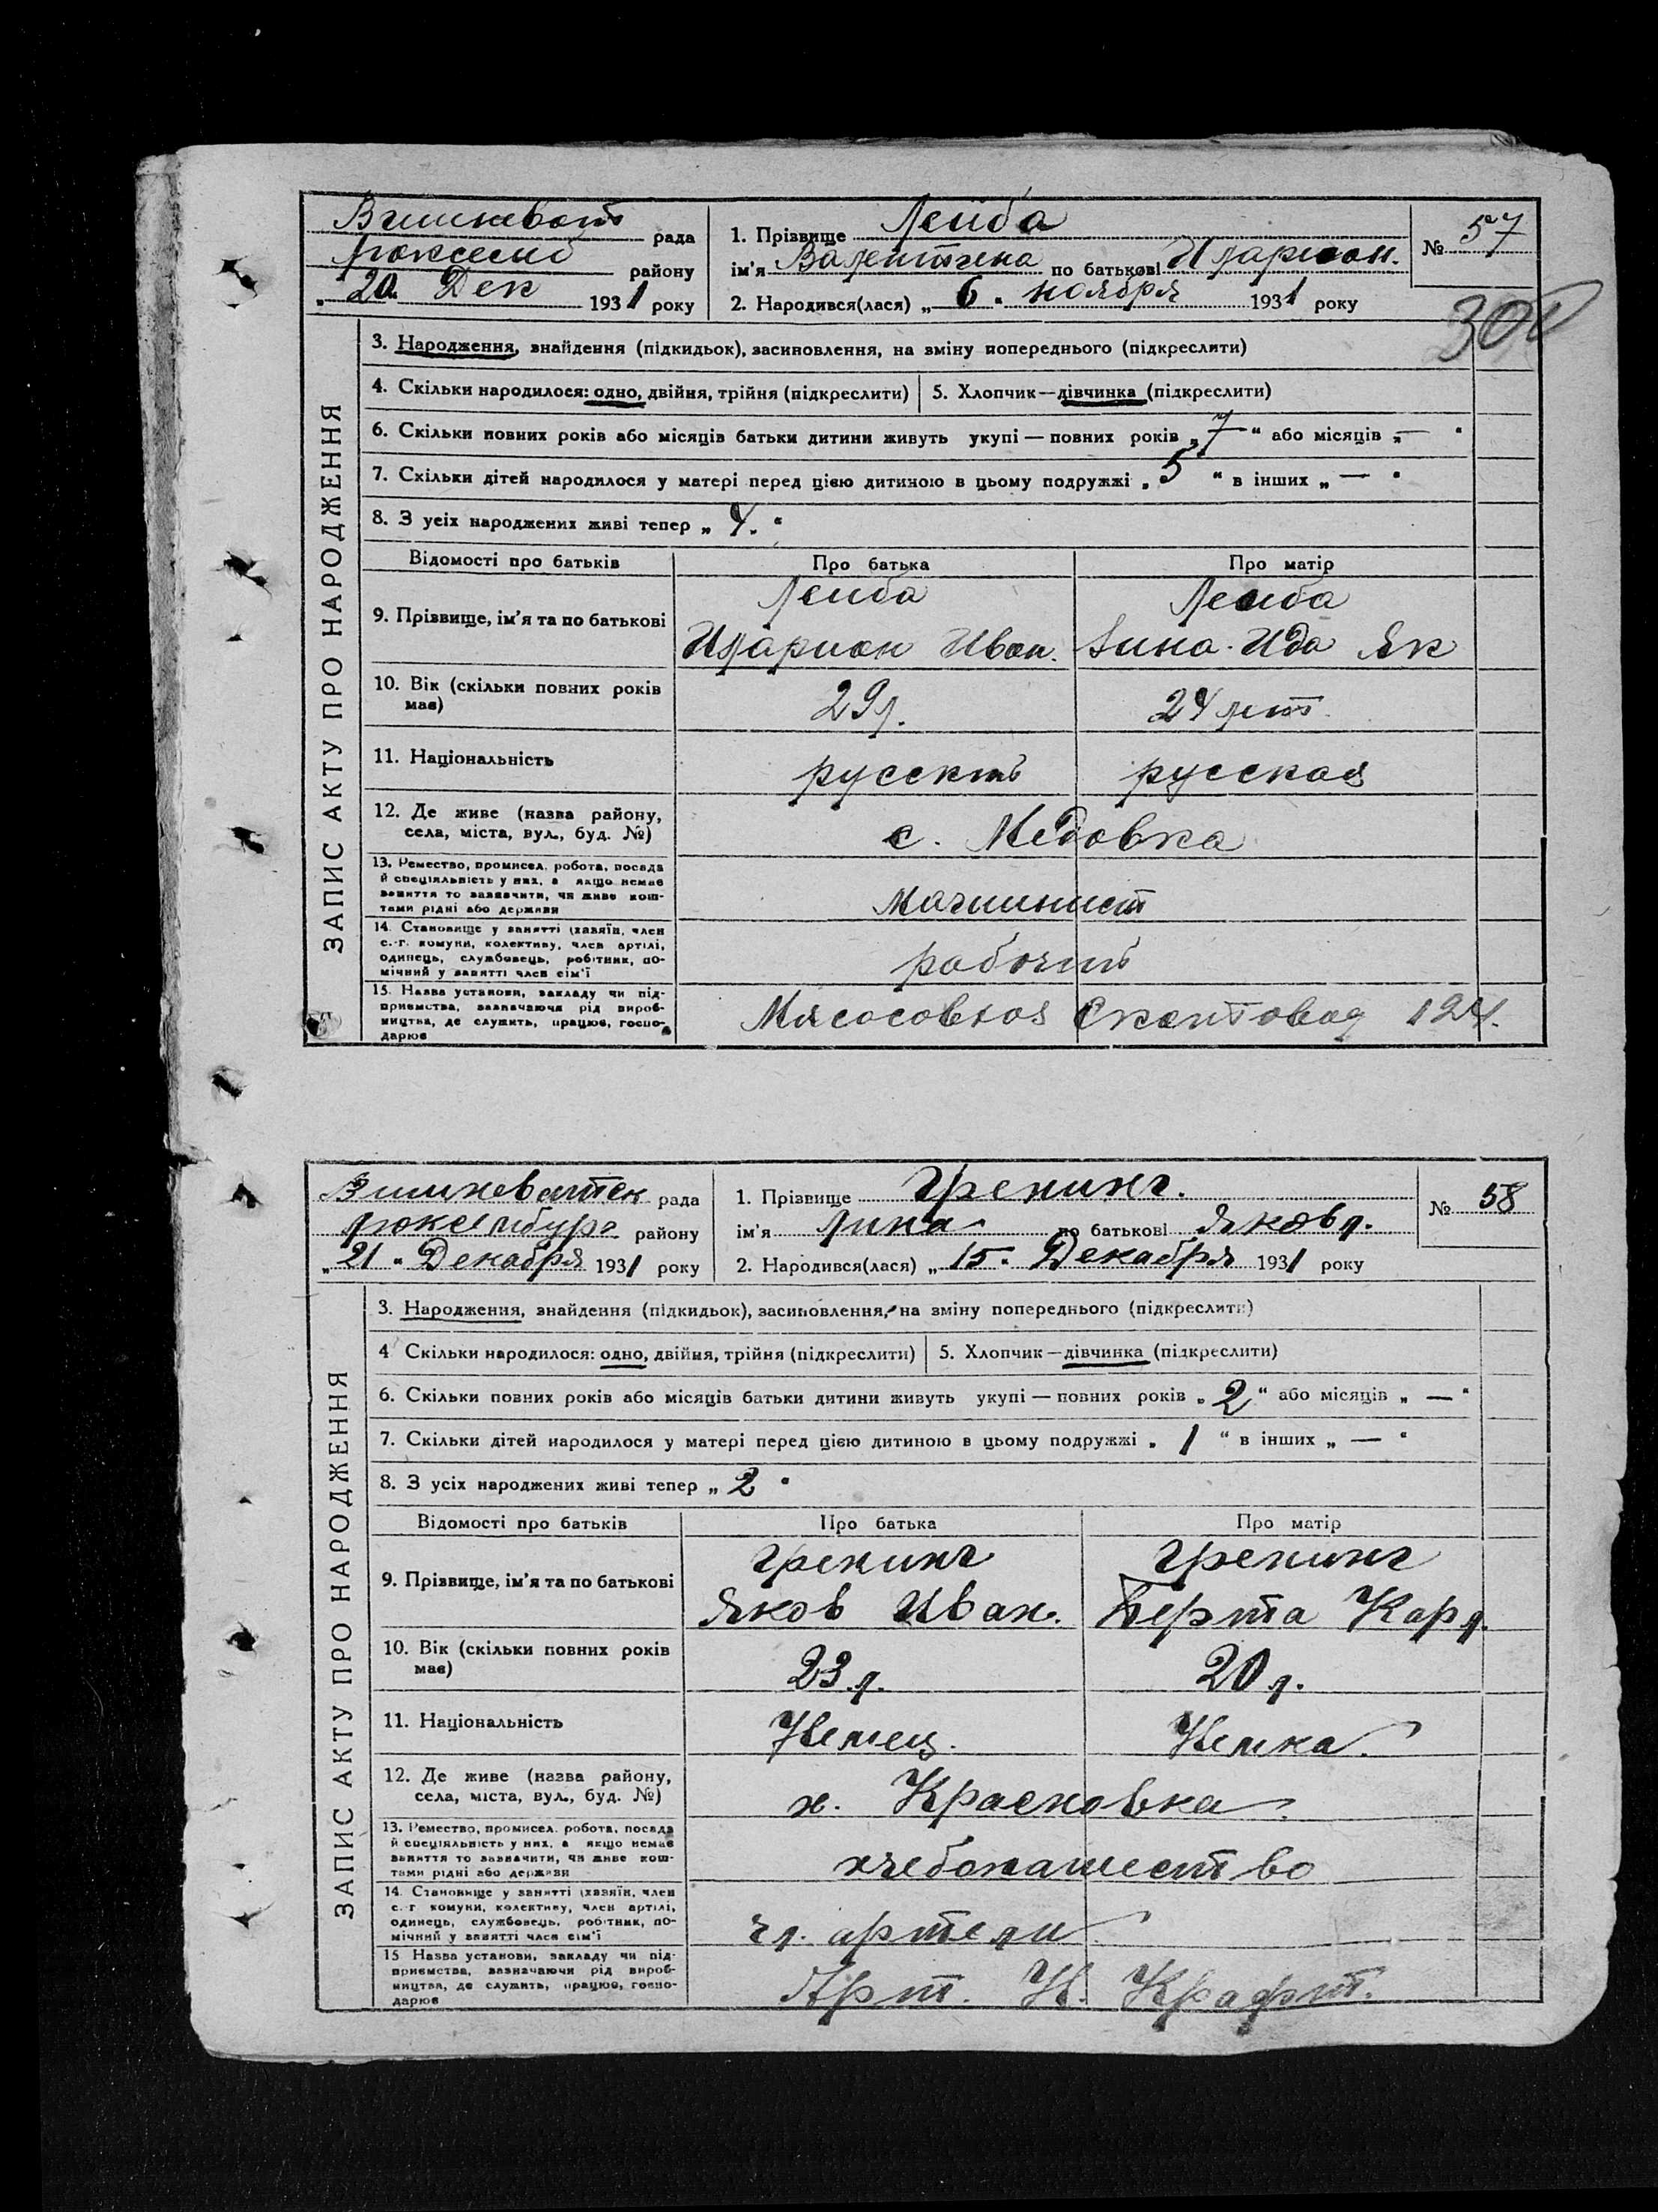 Вишневат рада
Люксемб району
„20„ Дек 1931 року
1. Прізвище Лейба
ім'я Валентина по батькові Иларион.
2. Народився(лася) „6„ ноября 1931 року
№ 57
300
ЗАПИС АКТУ ПРО НАРОДЖЕННЯ
3. Народження, знайдення (підкидьок), засиновлення, на зміну попереднього (підкреслити)
4. Скільки народилося: одно, двійня, трійня (підкреслити) 5. Хлопчик—дівчинка (підкреслити)
6. Скільки повних років або місяців батьки дитини живуть укупі — повних років „7“ або місяців „—“
7. Скільки дітей народилося у матері перед цією дитиною в цьому подружжі „5“ в інших „—“
8. З усіх народжених живі тепер „4.“
Відомості про батьків Про батька Про матір
9. Прізвище, ім'я та по батькові
Лейба Лейба
Иларион Иван. Ида Як
10. Вік (скільки повних років має)
29 л. 24 лет
11. Національність
русский русская
12. Де живе (назва району, села, міста, вул., буд. №)
с. Медовка
13. Ремество, промисел, робота, посада
й спеціяльність у них, а якщо немає
заняття то зазначити, чи живе кош-
тами рідні або держави
Машинист
14. Становище у занятті (хазяїн, член
с.-г. комуни, колективу, член артілі,
одинець, службовець, робітник, по-
мічний у занятті член сім'ї
рабочий
15. Назва установи, закладу чи під-
приємства, зазначаючи рід вироб-
ництва, де служить, працює, госпо-
дарює
Мясосовхоз Скотовод 124.
Вишневатск рада
Люксембург району
„21„ Декабря 1931 року
1. Прізвище Гренинг.
ім'я Лина по батькові Яковл.
2. Народився(лася) „15„ Декабря 1931 року
№ 58
ЗАПИС АКТУ ПРО НАРОДЖЕННЯ
3. Народження, знайдення (підкидьок), засиновлення, на зміну попереднього (підкреслити)
4 Скільки народилося: одно, двійня, трійня (підкреслити) 5. Хлопчик—дівчинка (підкреслити)
6. Скільки повних років або місяців батьки дитини живуть укупі — повних років „2“ або місяців „—“
7. Скільки дітей народилося у матері перед цією дитиною в цьому подружжі „1“ в інших „—“
8. З усіх народжених живі тепер „2“
Відомості про батьків Про батька Про матір
9. Прізвище, ім'я та по батькові
Гренинг Гренинг
Яков Иван. Берта Карл.
10. Вік (скільки повних років має)
23 л. 20 л.
11. Національність
Немец. Немка.
12. Де живе (назва району, села, міста, вул., буд. №)
х. Красновка
13. Ремество, промисел, робота, посада
й спеціяльність у них, а якщо немає
заняття то зазначити, чи живе кош-
тами рідні або держави
хлебопашество
14. Становище у занятті (хазяїн, член
с.-г комуни, колективу, член артілі,
одинець, службовець, робітник, по-
мічний у занятті член сім'ї
чл. артели
15 Назва установи, закладу чи під-
приємства, зазначаючи рід вироб-
ництва, де служить, працює, госпо-
дарює
Арт. Н. Крафт.